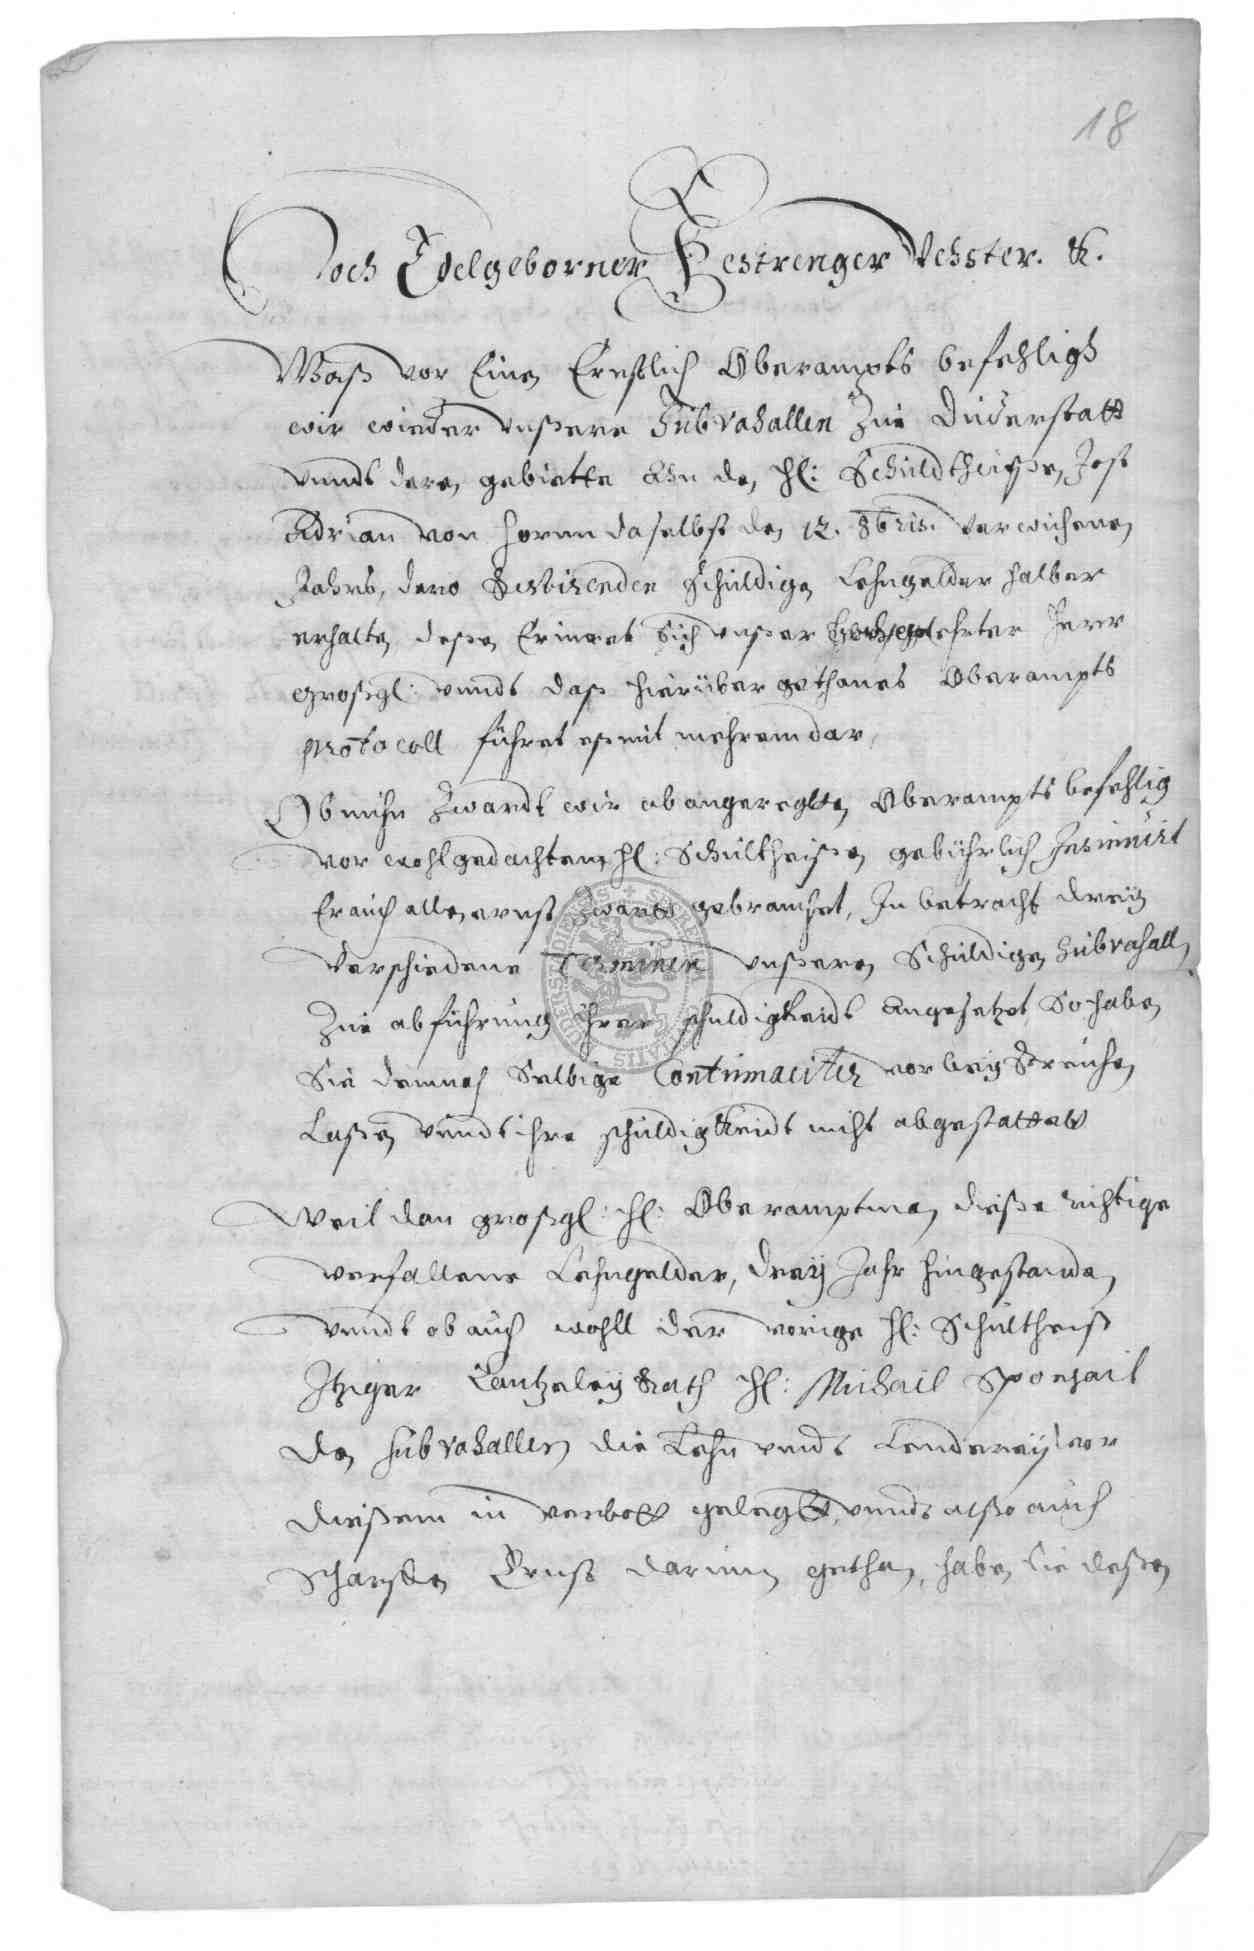 18
Hoch Edelgeborner Gestrenger Vehster. &.
Waß vor Einen Ernstlich Oberampts befehligh
wir wieder unßere Subvasallen Zue Duderstatt
unndt deren gebiette Ahn den H: Schuldtheißen, Jost
Adrian von Horen daselbst den 12. 8bris. Verwichenen
Jahrs, dero restirenden schuldigen Lehngelder halber
erhalten, deßen Erinnert sich unßer Hochgeehrter Herr
Großgl: unndt daß hierüber gethanes Oberampts
protocoll führet eß mit mehrem dar,
Ob nuhn Zwardt wir ob angeregtten Oberampts befehlig
vor wohlgedachtem H: Schultheißen gebührlich Insinuirt
Er auch allen ernst Zwartt gebrauchet, In betracht dreyen
Verschiedene Terminen unßeren Schuldigen Subvasallen
Zue abführung ihrer schuldigkeidt Angesetzet, So haben
Sie dennoch Selbige Contumaciter vorbey Streichen
Laßen undt ihre schuldigkeidt nicht abgestattet
Weil dan großgl: H: Oberamptman, dieße richtige
verfallene Lehngelder, drey Jahr hingestanden
undt ob auch wohll der vorige H: Schultheiß
Itziger Cantzeley Rath H: Michaël Sponsail
den Subvasallen die Lehn undt Länderey vor
dießem in verbott gelegtt, unndt alßo auch
Scharffen Ernst darinn gethan, haben sie deßen